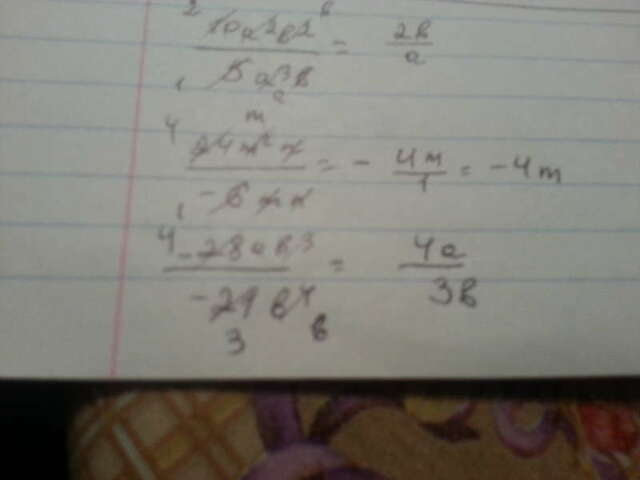 10a²b²/5a³b = 2b/a
24m²x/-6mx = -4m/1 = -4m
-28ab³/-21b⁴ = 4a/3b